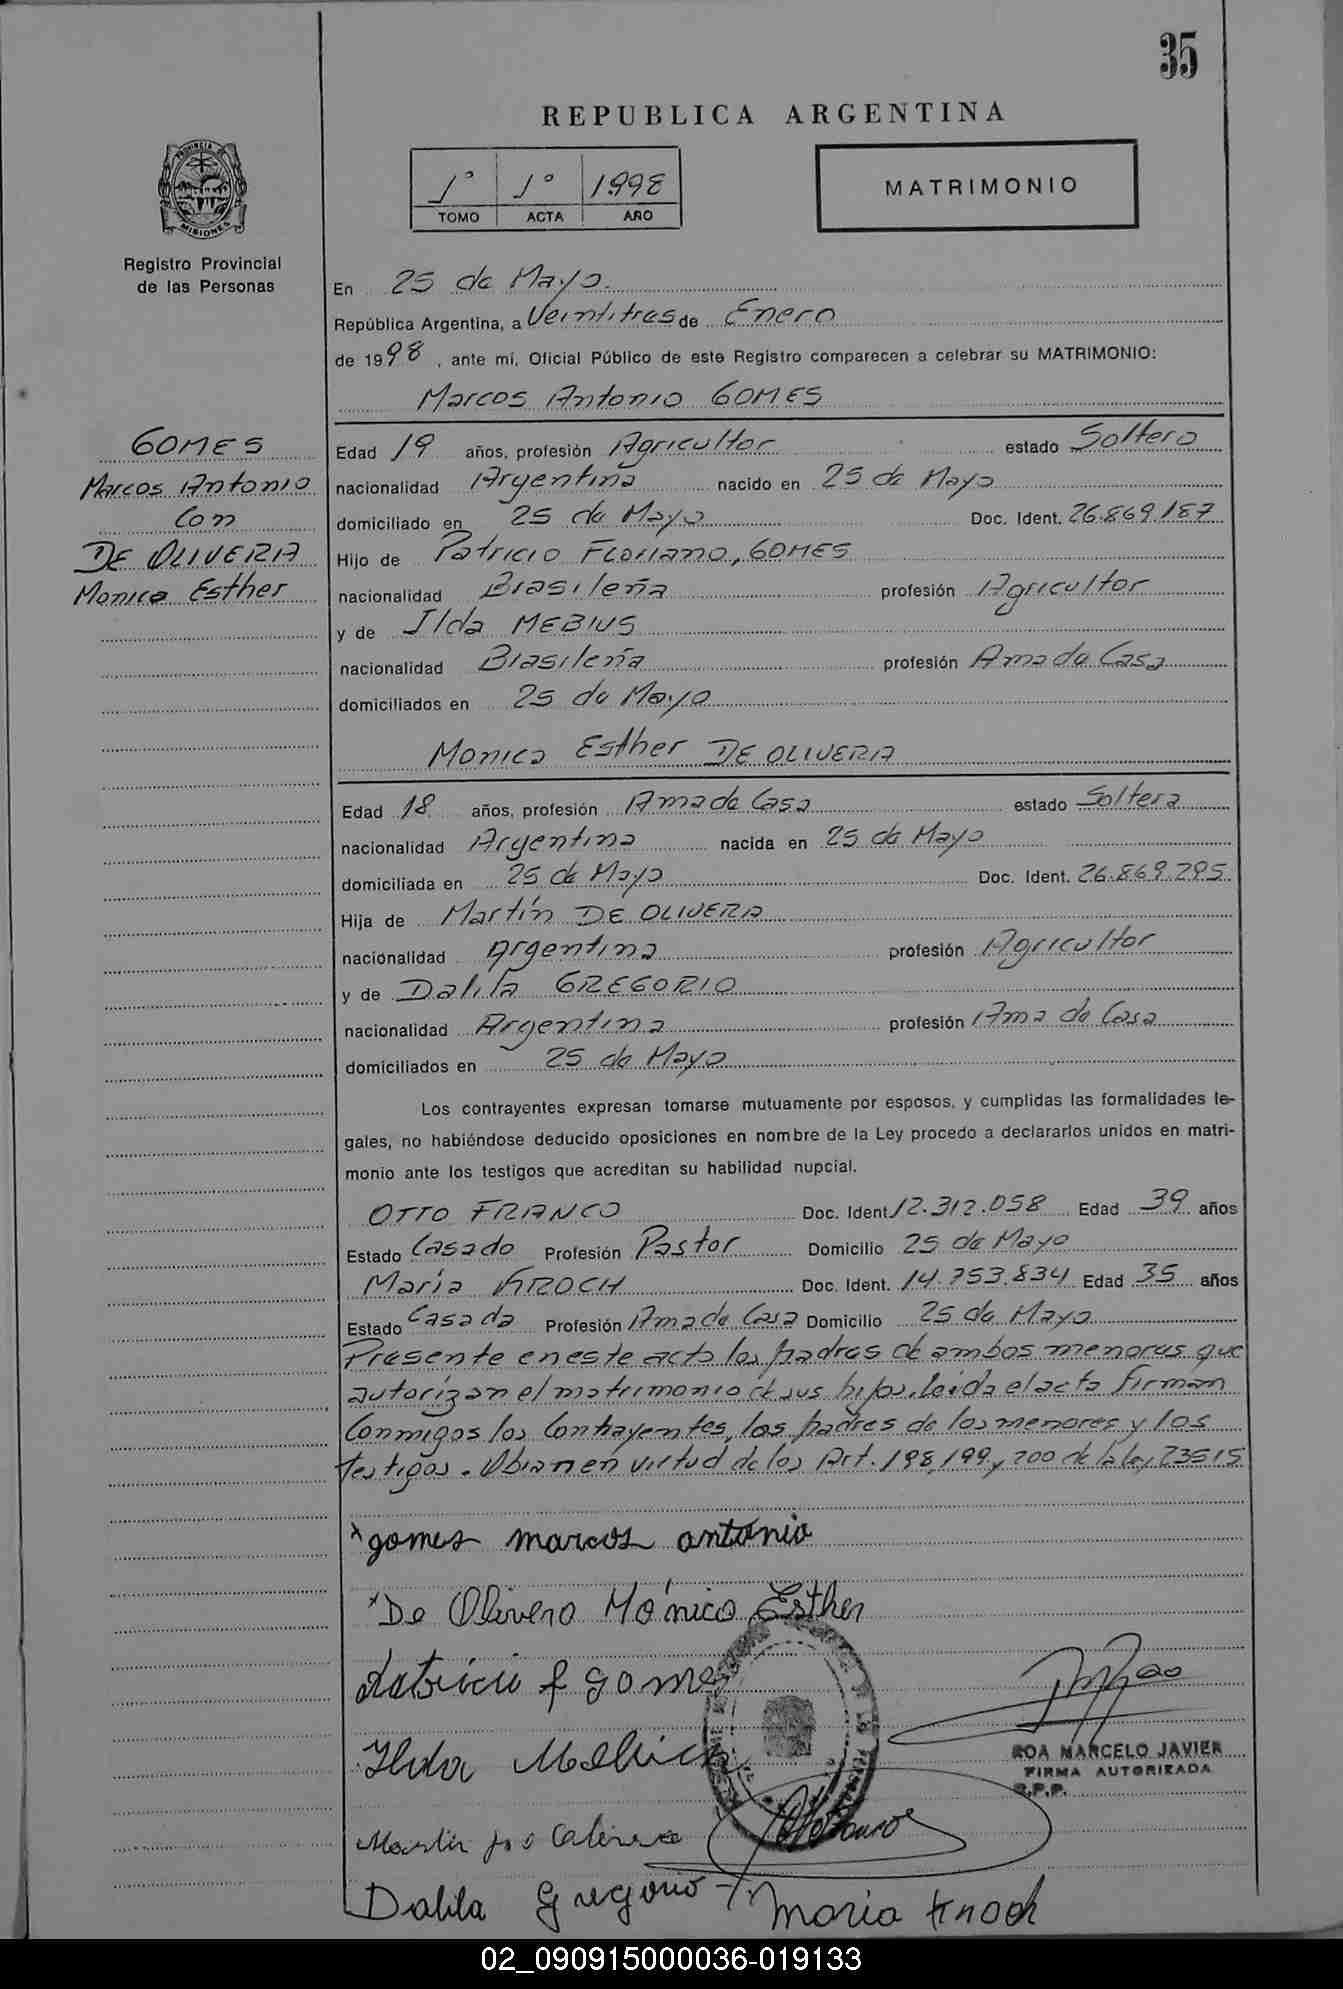 35
REPUBLICA ARGENTINA
1° 1° 1998
TOMO ACTA AÑO
MATRIMONIO
PROVINCIA DE
MISIONES
Registro Provincial
de las Personas
En 25 de Mayo
República Argentina, a Veintitres de Enero
de 1998, ante mí, Oficial Público de este Registro comparecen a celebrar su MATRIMONIO:
Marcos Antonio GOMES
GOMES
Marcos Antonio
Con
DE OLIVERA
Monica Esther
Edad 19 años, profesión Agricultor estado Soltero
nacionalidad Argentina nacido en 25 de Mayo
domiciliado en 25 de Mayo Doc. Ident. 26.869.187
Hijo de Patricio Floriano, GOMES
nacionalidad Brasileña profesión Agricultor
y de Ilda MEBIUS
nacionalidad Brasileña profesión Ama de Casa
domiciliados en 25 de Mayo
Monica Esther DE OLIVERA
Edad 18 años, profesión Ama de Casa estado Soltera
nacionalidad Argentina nacida en 25 de Mayo
domiciliada en 25 de Mayo Doc. Ident. 26.869.295
Hija de Martín DE OLIVERA
nacionalidad Argentina profesión Agricultor
y de Dalila GREGORIO
nacionalidad Argentina profesión Ama de Casa
domiciliados en 25 de Mayo
Los contrayentes expresan tomarse mutuamente por esposos, y cumplidas las formalidades le-
gales, no habiéndose deducido oposiciones en nombre de la Ley procedo a declararlos unidos en matri-
monio ante los testigos que acreditan su habilidad nupcial.
OTTO FRANCO Doc. Ident. 12.312.058 Edad 39 años
Estado Casado Profesión Pastor Domicilio 25 de Mayo
María KROCH Doc. Ident. 14.753.834 Edad 35 años
Estado Casada Profesión Ama de Casa Domicilio 25 de Mayo
Presente en este acto los padres de ambos menores que
autorizan el matrimonio de sus hijos, leida el acta firman
Conmigos los Contrayentes, los padres de los menores y los
testigos. Obran en virtud de los Art. 198, 199 y 200 de la ley 23515
x gomes marcos antonio
x De Olivera Mónica Esther
Patricio f gomes
Ilda
ROA MARCELO JAVIER
FIRMA AUTORIZADA
R.P.P.
Otto Franco
Dalila Gregorio
Maria Knoch
02_090915000036-019133